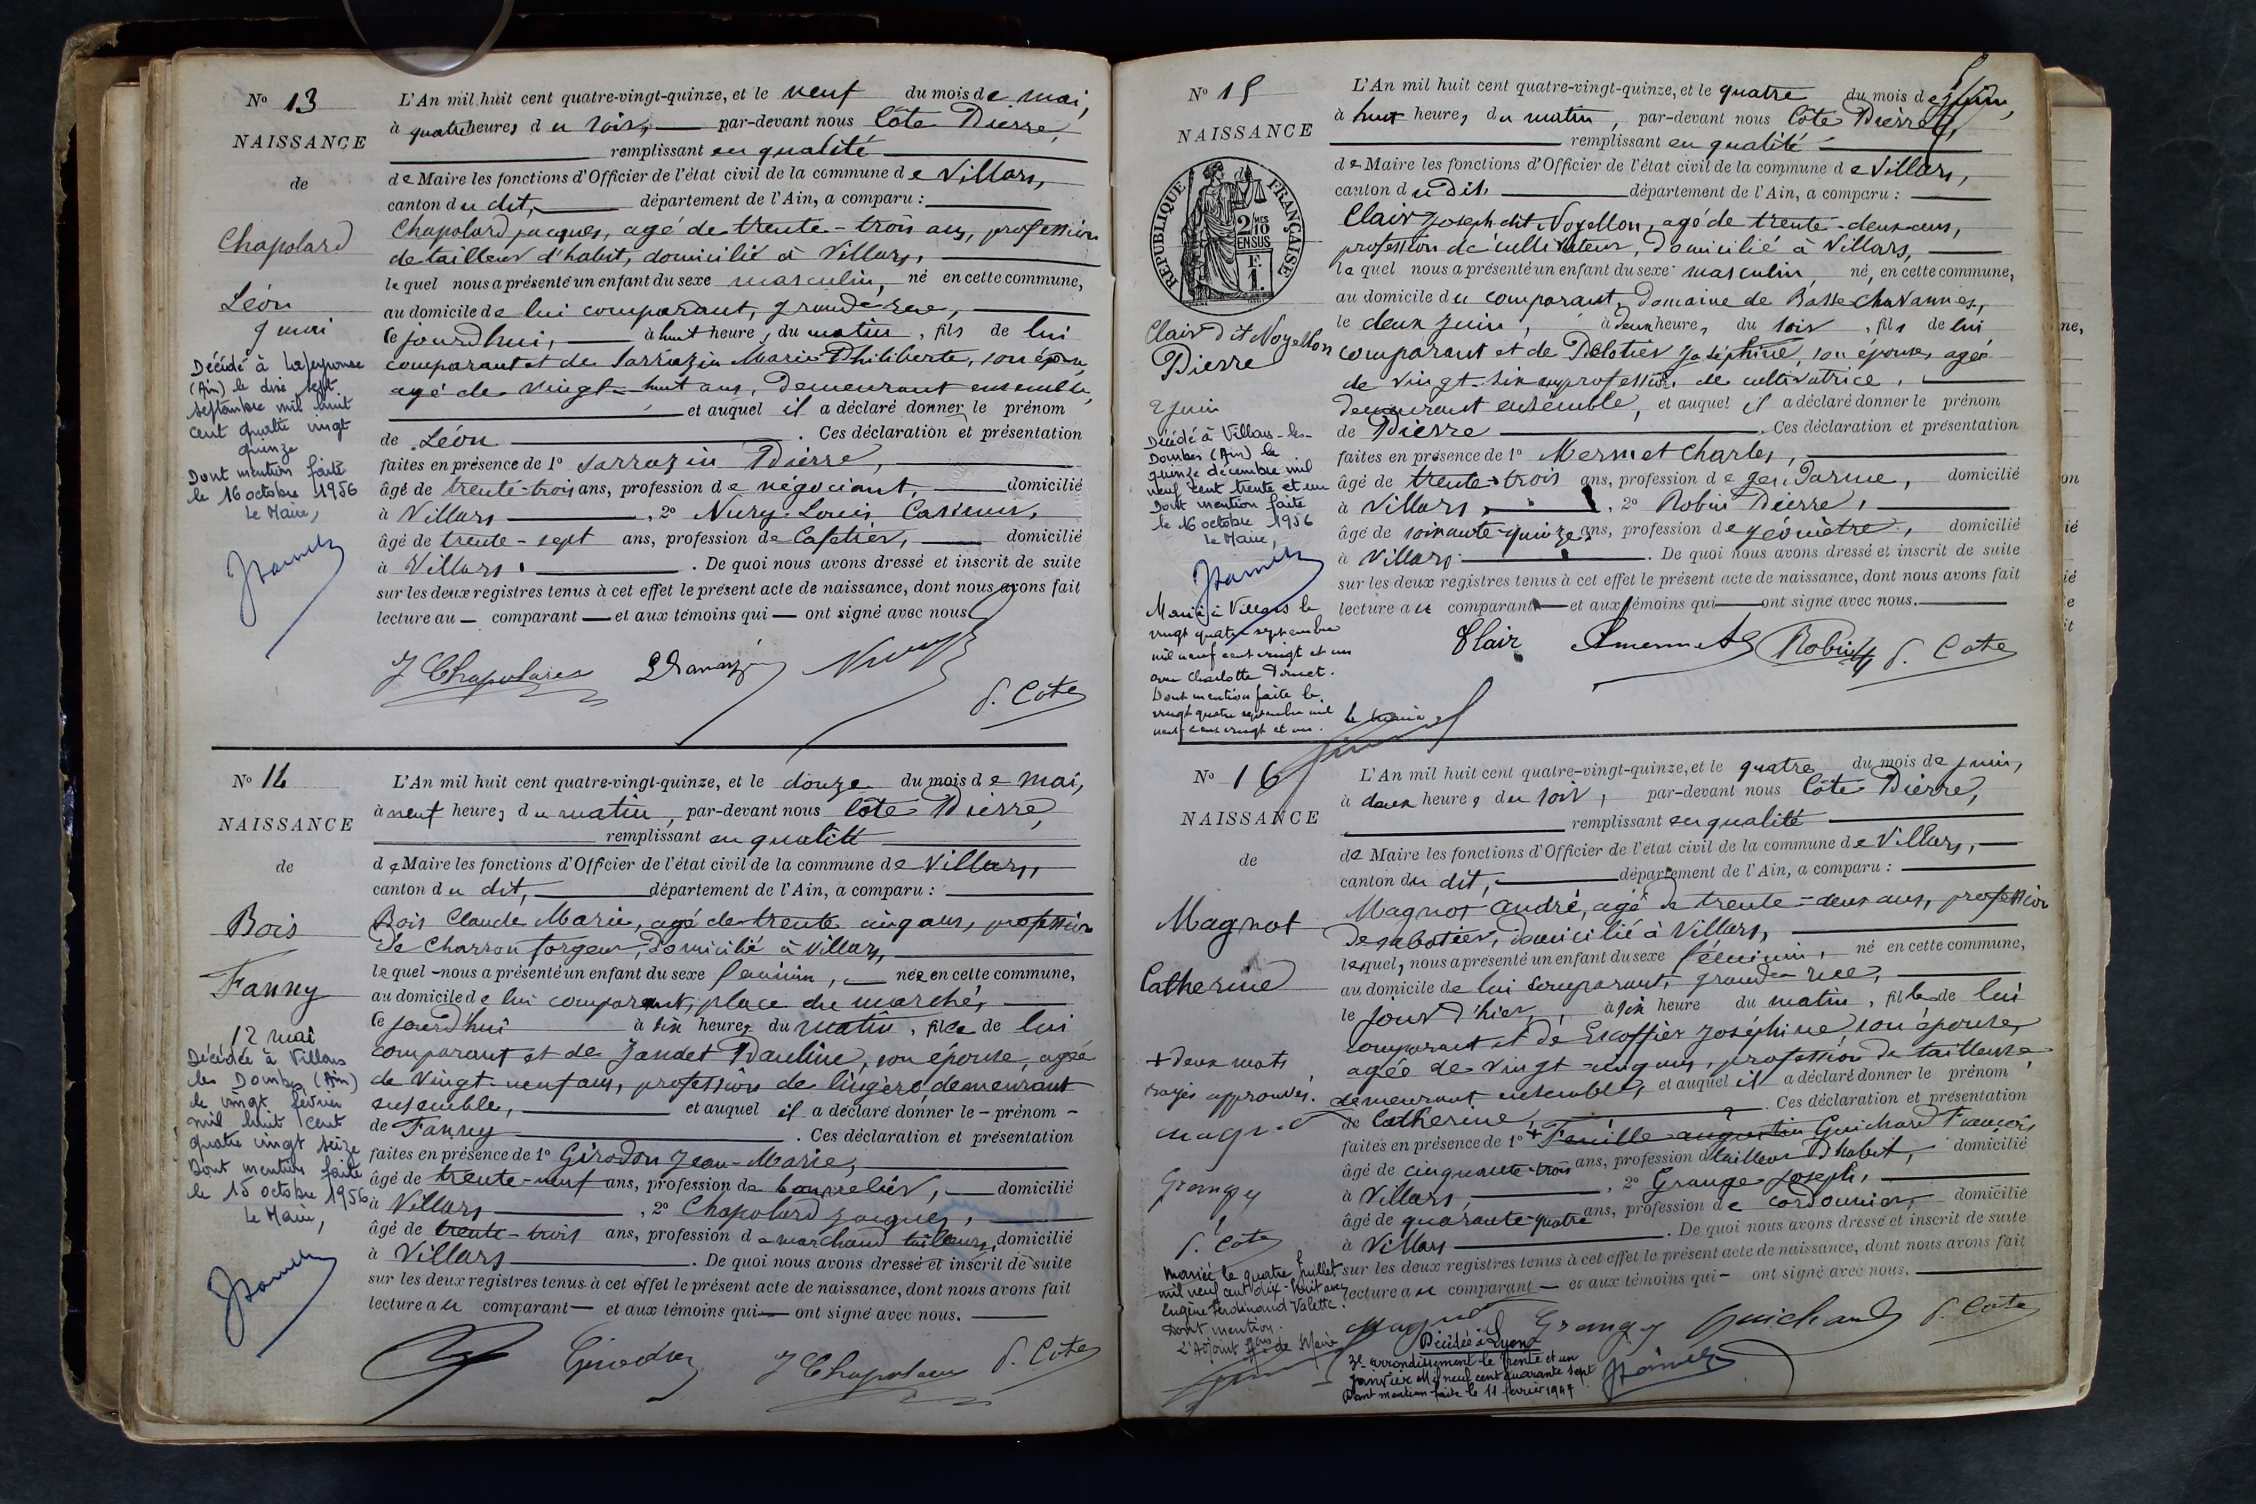 Nº 13
NAISSANCE
de
Chapolard
Léon
9 mai
Décédé à Lapeyrouse
(Ain) le dix sept
septembre mil huit
cent quatre vingt
quinze
Dont mention faite
le 16 octobre 1956
Le Maire,
L'An mil huit cent quatre-vingt-quinze, et le neuf du mois de mai,
à quatre heures du soir, par-devant nous Côte Pierre,
remplissant en qualité
de Maire les fonctions d'Officier de l'état civil de la commune de Villars,
canton du dit, département de l'Ain, a comparu :
Chapolard Jacques, agé de trente-trois ans, profession
de tailleur d'habit, domicilié à Villars,
lequel nous a présenté un enfant du sexe masculin, né en cette commune,
au domicile de lui comparant, grande rue,
ce jourd'hui, à huit heures du matin, fils de lui
comparant et de Sarrazin Marie Philiberte, son épouse,
agé de vingt-huit ans, demeurant ensemble,
et auquel il a déclaré donner le prénom
de Léon . Ces déclaration et présentation
faites en présence de 1º Sarrazin Pierre,
âgé de trente-trois ans, profession de négociant, domicilié
à Villars , 2º Nury Louis Casimir,
âgé de trente-sept ans, profession de Cafetier, domicilié
à Villars . De quoi nous avons dressé et inscrit de suite
sur les deux registres tenus à cet effet le présent acte de naissance, dont nous avons fait
lecture au comparant et aux témoins qui ont signé avec nous.
J Chapolard P Sarrazin Nury
P. Côte
Nº 14
NAISSANCE
de
Bois
Fanny
12 mai
Décédée à Villars
les Dombes (Ain)
le vingt février
mil huit cent
quatre vingt seize
Dont mention faite
le 15 octobre 1956
Le Maire,
L'An mil huit cent quatre-vingt-quinze, et le douze du mois de mai,
à neuf heures du matin, par-devant nous Côte Pierre,
remplissant en qualité
de Maire les fonctions d'Officier de l'état civil de la commune de Villars,
canton du dit, département de l'Ain, a comparu :
Bois Claude Marie, agé de trente cinq ans, profession
de Charron forgeur, domicilié à Villars,
lequel nous a présenté un enfant du sexe féminin, née en cette commune,
au domicile de lui comparant, place du marché,
ce jourd'hui à six heures du matin, fille de lui
comparant et de Jandet Pauline, son épouse, agée
de vingt-neuf ans, profession de lingère, demeurant
ensemble, et auquel il a déclaré donner le prénom
de Fanny . Ces déclaration et présentation
faites en présence de 1º Girodon Jean-Marie,
âgé de trente-neuf ans, profession de bourrelier, domicilié
à Villars , 2º Chapolard Jacques,
âgé de trente-trois ans, profession de marchand tailleur, domicilié
à Villars . De quoi nous avons dressé et inscrit de suite
sur les deux registres tenus à cet effet le présent acte de naissance, dont nous avons fait
lecture au comparant et aux témoins qui ont signé avec nous.
Girodon J Chapolard P. Côte
Nº 15
NAISSANCE
RÉPUBLIQUE FRANÇAISE
2 MES
10
EN SUS
F.
1.
Clair dit Noyellon
Pierre
2 juin
Décédé à Villars-les-
Dombes (Ain) le
quinze décembre mil
neuf cent trente et un
Dont mention faite
le 16 octobre 1956
Le Maire,
Marié à Villars le
vingt quatre septembre
mil neuf cent vingt et un
avec Charlotte
Dont mention faite le
vingt quatre septembre mil
neuf cent vingt et un.
le maire
L'An mil huit cent quatre-vingt-quinze, et le quatre du mois de juin,
à huit heures du matin, par-devant nous Côte Pierre,
remplissant en qualité
de Maire les fonctions d'Officier de l'état civil de la commune de Villars,
canton du dit, département de l'Ain, a comparu :
Clair Joseph dit Noyellon, agé de trente-deux ans,
profession de cultivateur, domicilié à Villars,
lequel nous a présenté un enfant du sexe masculin, né, en cette commune,
au domicile du comparant, Domaine de Basse Chavannes,
le deux juin, à deux heures du soir, fils de lui
comparant et de Pelotier Joséphine, son épouse, agée
de vingt-six ans, profession de cultivatrice,
demeurant ensemble, et auquel il a déclaré donner le prénom
de Pierre . Ces déclaration et présentation
faites en présence de 1º Mermet Charles,
âgé de trente-trois ans, profession de gendarme, domicilié
à Villars, , 2º Robin Pierre,
âgé de soixante-quinze ans, profession de géomètre, domicilié
à Villars . De quoi nous avons dressé et inscrit de suite
sur les deux registres tenus à cet effet le présent acte de naissance, dont nous avons fait
lecture au comparant et aux témoins qui ont signé avec nous.
Clair Mermet Robin P. Côte
Nº 16
NAISSANCE
de
Magnot
Catherine
+ deux mots
rayés approuvés.
Magnot
Grange
P. Côte
Mariée le quatre juillet
mil neuf cent dix-huit avec
Eugène Ferdinand Valette.
Dont mention.
L'Adjoint ffons de Maire
L'An mil huit cent quatre-vingt-quinze, et le quatre du mois de juin,
à deux heures du soir, par-devant nous Côte Pierre,
remplissant en qualité
de Maire les fonctions d'Officier de l'état civil de la commune de Villars,
canton du dit, département de l'Ain, a comparu :
Magnot André, agé de trente-deux ans, profession
de sabotier, domicilié à Villars,
lequel, nous a présenté un enfant du sexe féminin, né en cette commune,
au domicile de lui comparant, grande rue,
le jour d'hier, à six heure du matin, fille de lui
comparant et de Escoffier Joséphine son épouse,
agée de vingt-cinq ans, profession de tailleuse
demeurant ensemble, et auquel il a déclaré donner le prénom
de Catherine . Ces déclaration et présentation
faites en présence de 1º + Feuille Augustin Guichard François
âgé de cinquante-trois ans, profession de tailleur d'habit, domicilié
à Villars, , 2º Grange Joseph,
âgé de quarante-quatre ans, profession de cordonnier, domicilié
à Villars . De quoi nous avons dressé et inscrit de suite
sur les deux registres tenus à cet effet le présent acte de naissance, dont nous avons fait
lecture au comparant et aux témoins qui ont signé avec nous.
Magnot Grange Guichard P. Côte
Décédée à Lyon
3e arrondissement le trente et un
janvier mil neuf cent quarante sept
Dont mention faite le 11 février 1947